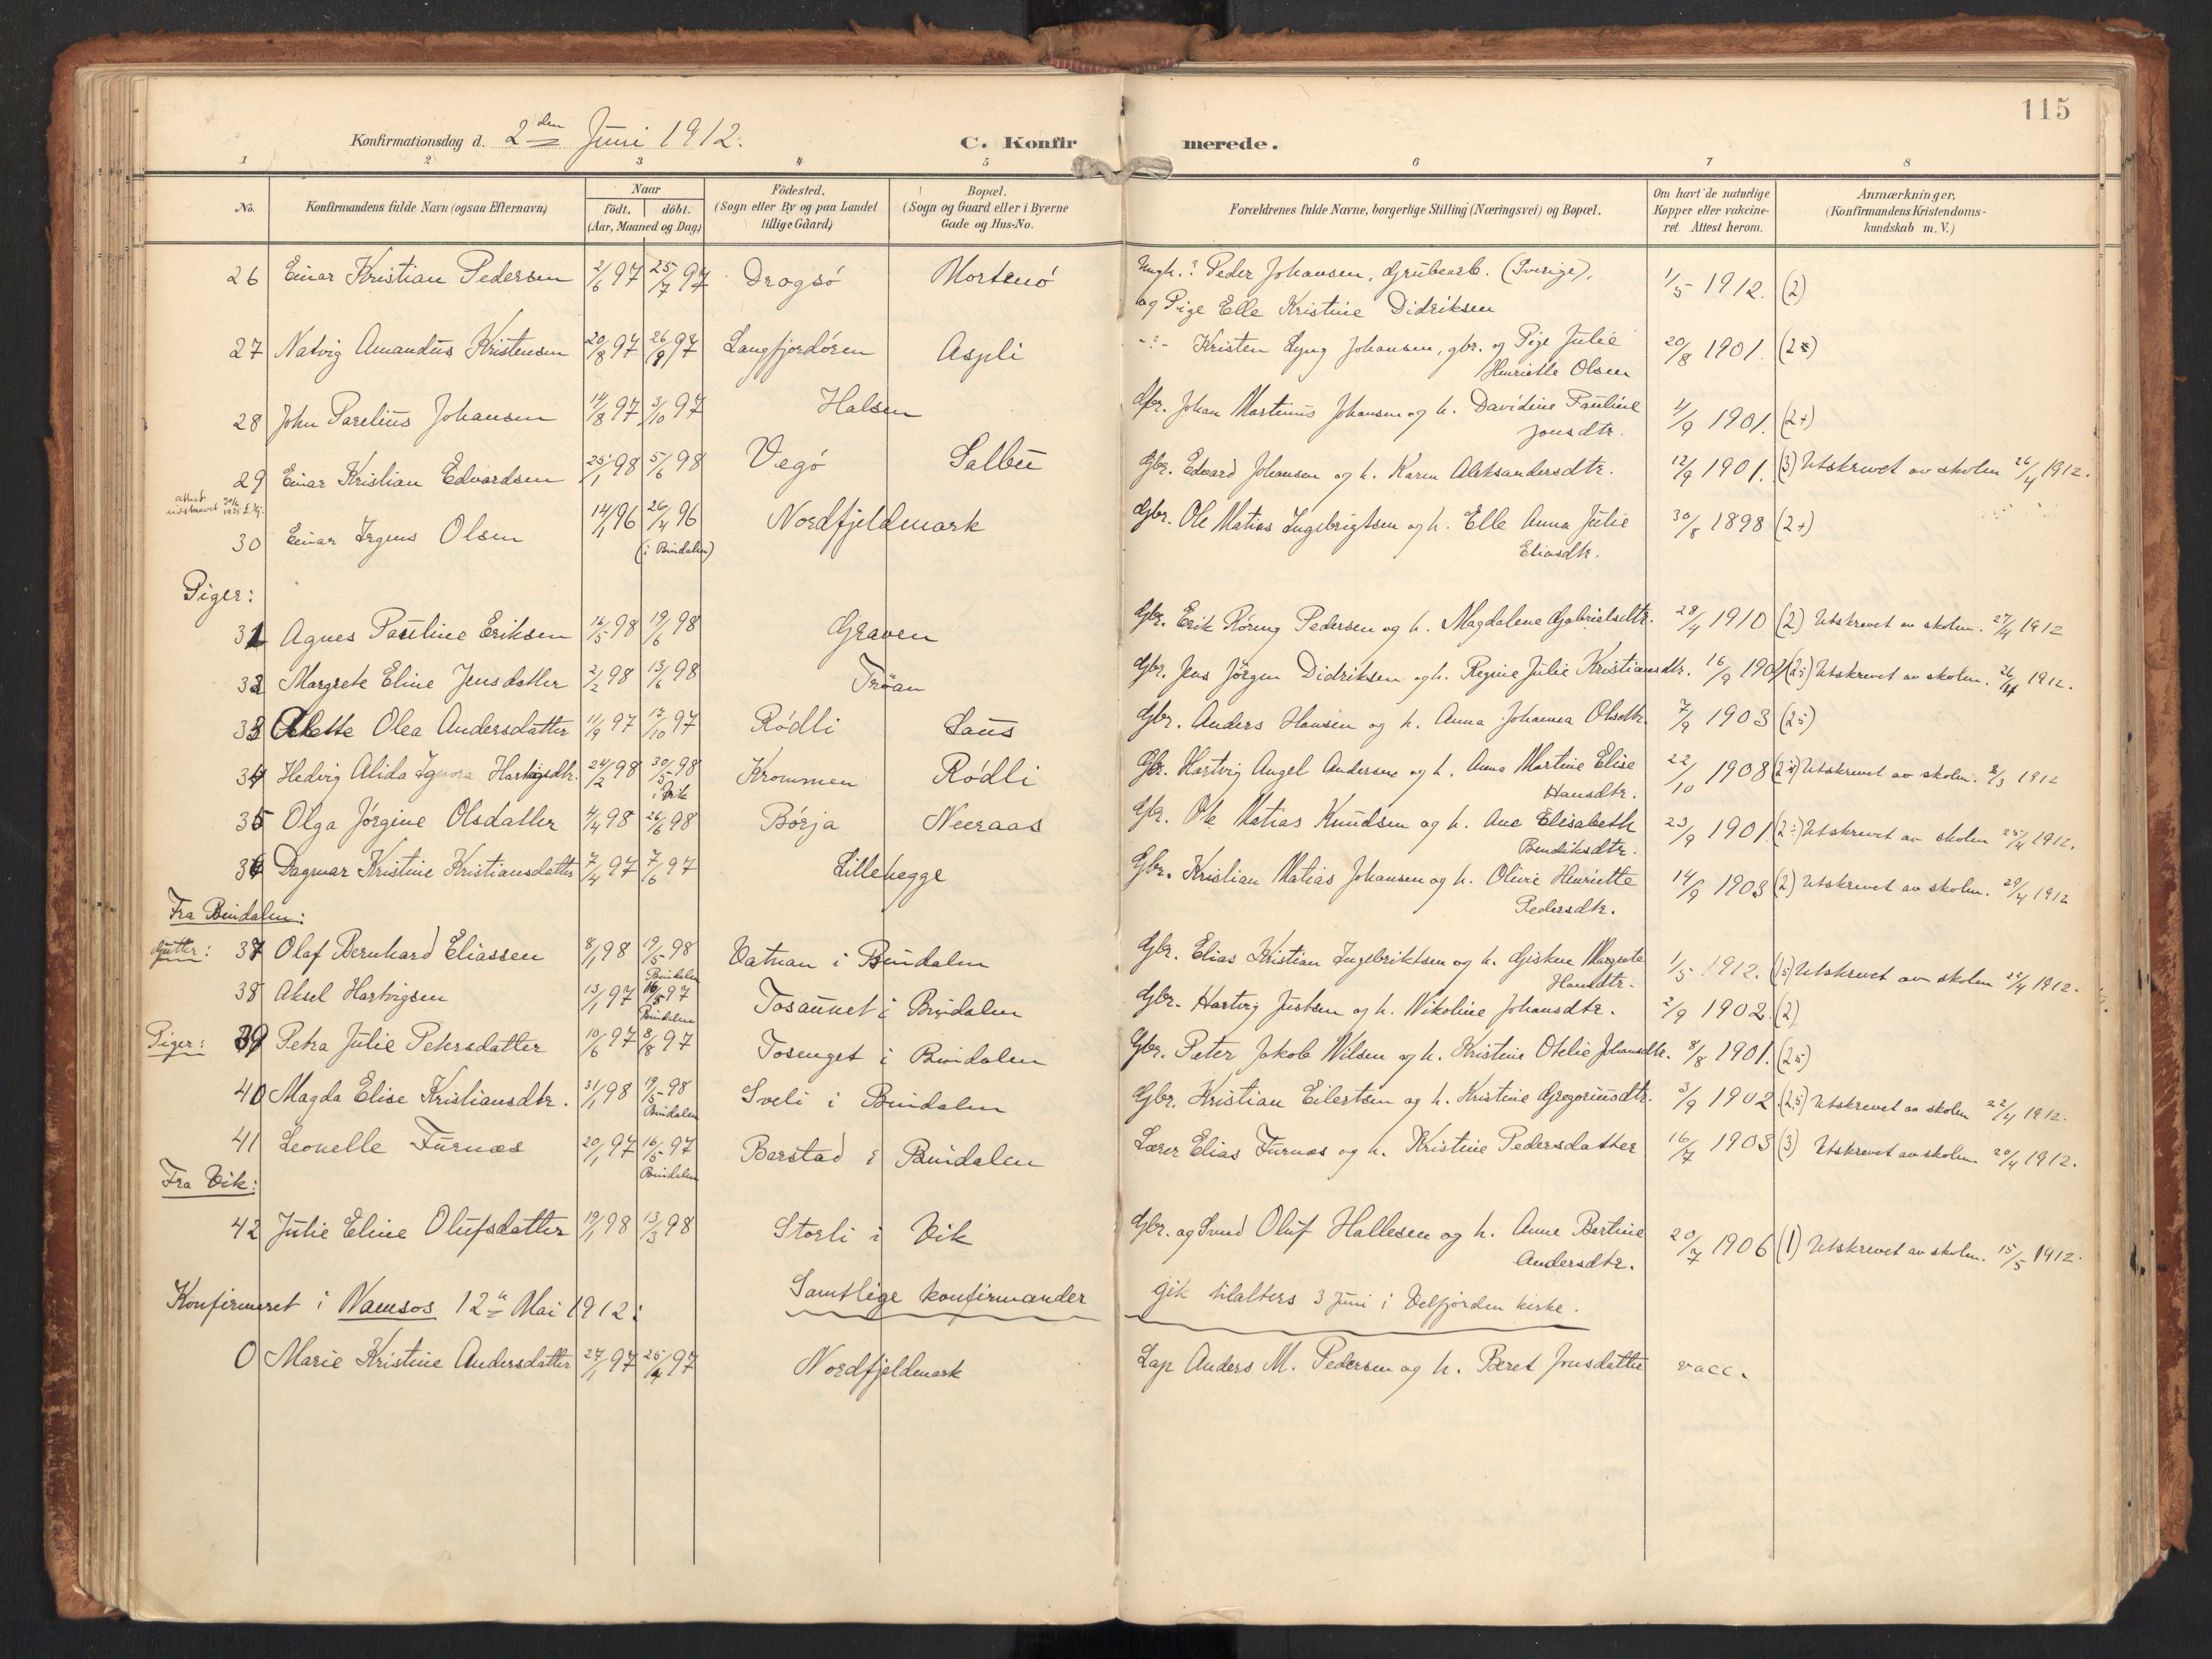 115
Konfirmationsdag d. 2den Juni 1912.
C. Konfirmerede.
1 2 3 4 5 6 7 8
No. Konfirmandens fulde Navn (ogsaa Efternavn) Naar født. døbt. (Aar, Maaned og Dag) Födested. (Sogn eller By og paa Landet tillige Gaard) Bopæl. (Sogn og Gaard eller i Byerne Gade og Hus-No. Forældrenes fulde Navne, borgerlige Stilling (Næringsvei) og Bopæl. Om havt de naturlige Kopper eller vakcineret. Attest herom. Anmærkninger, (Konfirmandens Kristendomskundskab m. V.)
26 Einar Kristian Pedersen 2/6 97 25/7 97 Drogsö Hortenö Ungk.: Peder Johansen, Grubearb. (Sverige), 1/5 1912. (2)
og Pige Elle Kristine Didriksen
27 Natvig Amandus Kristensen 20/8 97 26/9 97 Langfjordören Aspli -:- Kristen Lyng Johansen, gbr. og Pige Julie 20/8 1901. (2)
Henriette Olsen
28 John Parelius Johansen 14/8 97 3/10 97 Halsen Gbr. Johan Martinus Johansen og h. Davidine Pauline 4/9 1901. (2+)
Jonsdtr.
29 Einar Kristian Edvardsen 25/1 98 5/6 98 Vegö Salbu Gbr. Edvard Johansen og h. Karen Aleksandersdtr. 12/9 1901. (3) Utskrevet av skolen 26/4 1912.
attest
30 Einar Irgens Olsen 14/1 96 26/4 96 Nordfjeldmark Gbr. Ole Matias Ingebrigtsen og h. Elle Anna Julie 30/8 1898 (2+)
(i Bindalen) Eliasdtr.
Piger:
31 Agnes Pauline Eriksen 16/5 98 19/6 98 Graven Gbr. Erik Röring Pedersen og h. Magdalene Gabrielsdtr. 28/4 1910 (2) Utskrevet av skolen. 27/4 1912
32 Margrete Eline Jensdatter 2/2 98 13/6 98 Tröan Gbr. Jens Jörgen Didriksen og h. Regine Julie Kristiansdtr. 16/9 1901 (2) Utskrevet av skolen. 26/4 1912.
33 Olea Andersdatter 11/9 97 17/10 97 Rödli Saus Gbr. Anders Hansen og h. Anna Johanna Olsdtr. 7/9 1903 (25)
34 Hedvig Alida Ignora Hartvigsdtr. 24/2 98 30/5 98 Krommen Rödli Gbr. Hartvig Angel Andersen og h. Anna Martine Elise 22/10 1908 Utskrevet av skolen. 2/3 1912
i Vik Hansdtr.
35 Olga Jörgine Olsdatter 4/4 98 26/6 98 Börja Neeraas Gbr. Ole Matias Knudsen og h. Ane Elisabeth 23/9 1901 Utskrevet av skolen 25/4 1912.
Bendiksdtr.
36 Dagmar Kristine Kristiansdatter 7/4 97 7/6 97 Lillehegge Gbr. Kristian Matias Johansen og h. Olivie Henriette 14/9 1903 (2) Utskrevet av skolen. 29/4 1912
Pedersdtr.
Fra Bindalen:
Gutter: 37 Olaf Bernhard Eliassen 8/1 98 19/5 98 Vatnan i Bindalen Gbr. Elias Kristian Ingebriktsen og h. Gisken Margrete 1/5 1912. Utskrevet av skolen 22/4 1912.
Bindalen Hansdtr.
38 Aksel Hartvigsen 13/1 97 16/5 97 Tosaunet i Bindalen Gbr. Hartvig Justsen og h. Nikoline Johansdtr. 2/9 1902. (2)
Bindalen
Piger: 39 Petra Julie Petersdatter 10/6 97 8/8 97 Tosenget i Bindalen Gbr. Peter Jakob Nilsen og h. Kristine Otelie Johansdtr. 8/8 1901. (25)
40 Magda Elise Kristiansdtr. 31/1 98 19/5 98 Sveli i Bindalen Gbr. Kristian Eilertsen og h. Kristine Gregoriusdtr. 3/9 1902 (25) Utskrevet av skolen 22/4 1912.
Bindalen
41 Leonelle Furnæs 20/1 97 16/5 97 Barstad i Bindalen Lærer Elias Furnæs og h. Kristine Pedersdatter 16/7 1903 (3) Utskrevet av skolen 20/4 1912.
Bindalen
Fra Vik:
42 Julie Eline Olufsdatter 19/1 98 13/3 98 Storli i Vik Gbr. og Smed Oluf Hallesen og h. Anne Bertine 20/7 1906 (1) Utskrevet av skolen. 15/5 1912.
Andersdtr.
Samtlige konfirmander gik tilalters 3 Juni i Velfjorden kirke.
Konfirmeret i Namsos 12te Mai 1912:
0 Marie Kristine Andersdatter 27/1 97 25/4 97 Nordfjeldmark Lap Anders M. Pedersen og h. Beret Jonsdatter vacc.